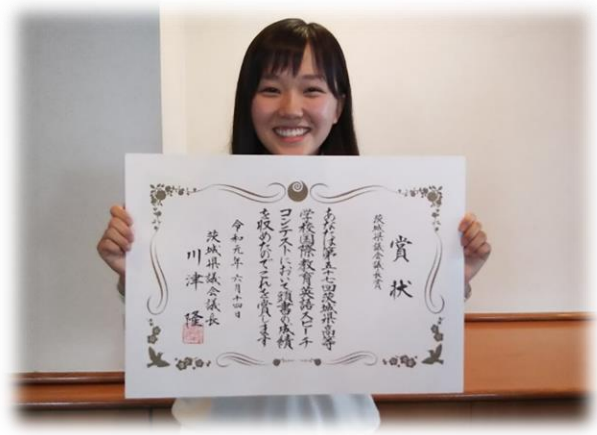 賞状
茨城県議会議長賞
あなたは第五十七回茨城県高等
学校国際教育英語スピーチ
コンテストにおいて頭書の成績
を収めたのでこれを賞します
令和元年六月十四日
茨城県議会議長
川津隆